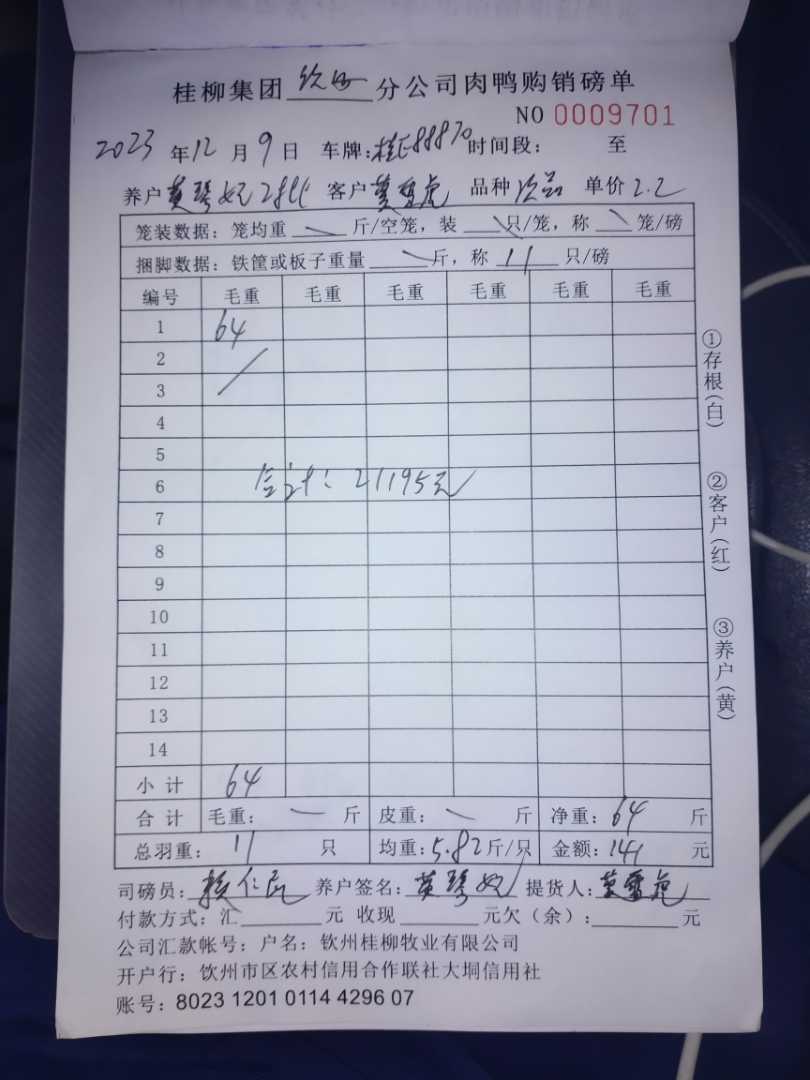 桂柳集团 钦州 分公司肉鸭购销磅单
NO 0009701
2023 年 12 月 9 日 车牌:桂E88870 时间段: 至
养户 黄琴奴 客户 莫雪虎 品种 次品 单价 2.2
笼装数据:笼均重 斤/空笼,装 只/笼,称 笼/磅
捆脚数据:铁筐或板子重量 斤,称 11 只/磅
编号 毛重 毛重 毛重 毛重 毛重 毛重
1 64
2
3
4
5
6 合计:21195元
7
8
9
10
11
12
13
14
小计 64
合计 毛重: 一 斤 皮重: 斤 净重:64 斤
总羽重: 11 只 均重:5.82斤/只 金额:141 元
司磅员: 仁 养户签名:黄琴奴 提货人:莫雪虎
付款方式:汇 元 收现 元欠(余): 元
公司汇款帐号:户名:钦州桂柳牧业有限公司
开户行:钦州市区农村信用合作联社大垌信用社
账号:8023 1201 0114 4296 07
①存根(白)
②客户(红)
③养户(黄)